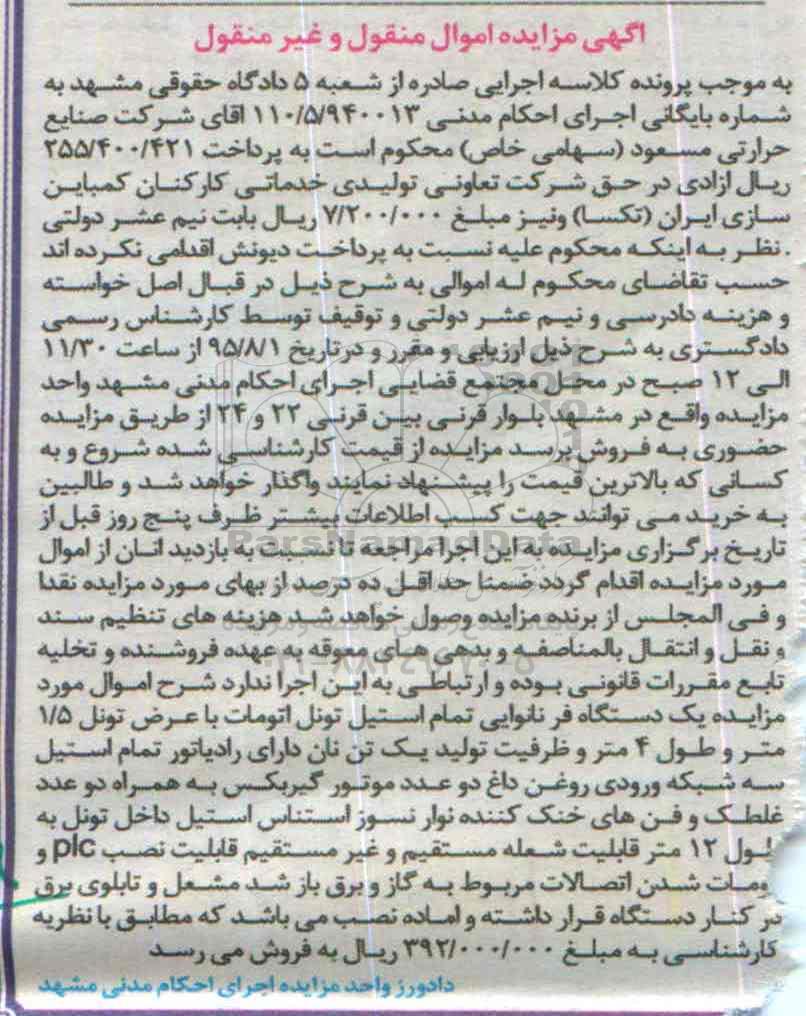 اگهی مزایده اموال منقول و غیر منقول
به موجب پرونده کلاسه اجرایی صادره از شعبه ۵ دادگاه حقوقی مشهد به
شماره بایگانی اجرای احکام مدنی ۱۱۰/۵/۹۴۰۰۱۳ اقای شرکت صنایع
حرارتی مسعود (سهامی خاص) محکوم است به پرداخت ۲۵۵/۴۰۰/۴۲۱
ریال ازادی در حق شرکت تعاونی تولیدی خدماتی کارکنان کمباین
سازی ایران (تکسا) ونیز مبلغ ۷/۲۰۰/۰۰۰ ریال بابت نیم عشر دولتی
. نظر به اینکه محکوم علیه نسبت به پرداخت دیونش اقدامی نکرده اند
حسب تقاضای محکوم له اموالی به شرح ذیل در قبال اصل خواسته
و هزینه دادرسی و نیم عشر دولتی و توقیف توسط کارشناس رسمی
دادگستری به شرح ذیل ارزیابی و مقرر و درتاریخ ۹۵/۸/۱ از ساعت ۱۱/۳۰
الی ۱۲ صبح در محل مجتمع قضایی اجرای احکام مدنی مشهد واحد
مزایده واقع در مشهد بلوار قرنی بین قرنی ۲۲ و ۲۴ از طریق مزایده
حضوری به فروش برسد مزایده از قیمت کارشناسی شده شروع و به
کسانی که بالاترین قیمت را پیشنهاد نمایند واگذار خواهد شد و طالبین
به خرید می توانند جهت کسب اطلاعات بیشتر ظرف پنج روز قبل از
ParsNamadData
تاریخ برگزاری مزایده به این اجرا مراجعه تا نسبت به بازدید انان از اموال
مورد مزایده اقدام گردد ضمنا حد اقل ده درصد از بهای مورد مزایده نقدا
و فی المجلس از برنده مزایده وصول خواهد شد هزینه های تنظیم سند
و نقل و انتقال بالمناصفه و بدهی های معوقه به عهده فروشنده و تخلیه
تابع مقررات قانونی بوده و ارتباطی به این اجرا ندارد شرح اموال مورد
مزایده یک دستگاه فر نانوایی تمام استیل تونل اتومات با عرض تونل ۱/۵
متر و طول ۴ متر و ظرفیت تولید یک تن نان دارای رادیاتور تمام استیل
سه شبکه ورودی روغن داغ دو عدد موتور گیربکس به همراه دو عدد
غلطک و فن های خنک کننده نوار نسوز استناس استیل داخل تونل به
طول ۱۲ متر قابلیت شعله مستقیم و غیر مستقیم قابلیت نصب plc و
ومات شدن اتصالات مربوط به گاز و برق باز شد مشعل و تابلوی برق
در کنار دستگاه قرار داشته و اماده نصب می باشد که مطابق با نظریه
کارشناسی به مبلغ ۳۹۲/۰۰۰/۰۰۰ ریال به فروش می رسد
دادورز واحد مزایده اجرای احکام مدنی مشهد